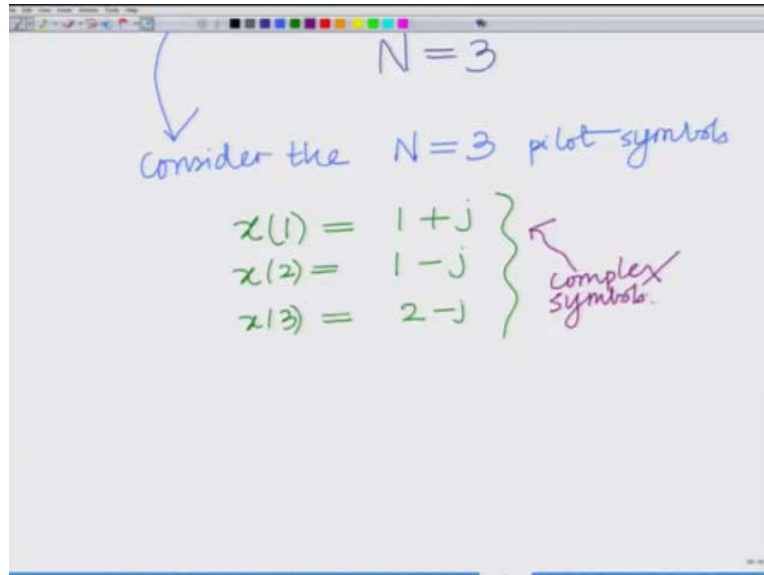 N = 3
Consider the N = 3 pilot symbols
x(1) = 1 + j
x(2) = 1 - j
x(3) = 2 - j
complex
symbols.